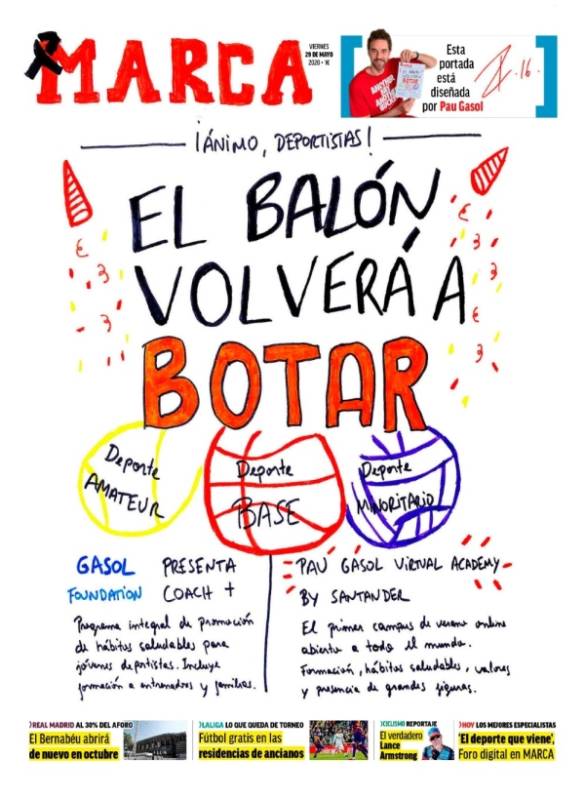 MARCA
VIERNES
29 DE MAYO
2020 · 1€
Esta
portada
está
diseñada
por Pau Gasol
16.
¡ÁNIMO, DEPORTISTAS!
EL BALÓN
VOLVERÁ A
BOTAR
Deporte
AMATEUR
Deporte
BASE
Deporte
MINORITARIO
GASOL PRESENTA
FOUNDATION COACH +
Programa integral de promoción
de hábitos saludables para
jóvenes deportistas. Incluye
formación a entrenadores y familias.
PAU GASOL VIRTUAL ACADEMY
BY SANTANDER
El primer campus de verano online
abierto a todo el mundo.
Formación, hábitos saludables, valores
y presencia de grandes figuras.
REAL MADRID AL 30% DEL AFORO
El Bernabéu abrirá
de nuevo en octubre
LALIGA LO QUE QUEDA DE TORNEO
Fútbol gratis en las
residencias de ancianos
CICLISMO REPORTAJE
El verdadero
Lance
Armstrong
HOY LOS MEJORES ESPECIALISTAS
'El deporte que viene',
Foro digital en MARCA